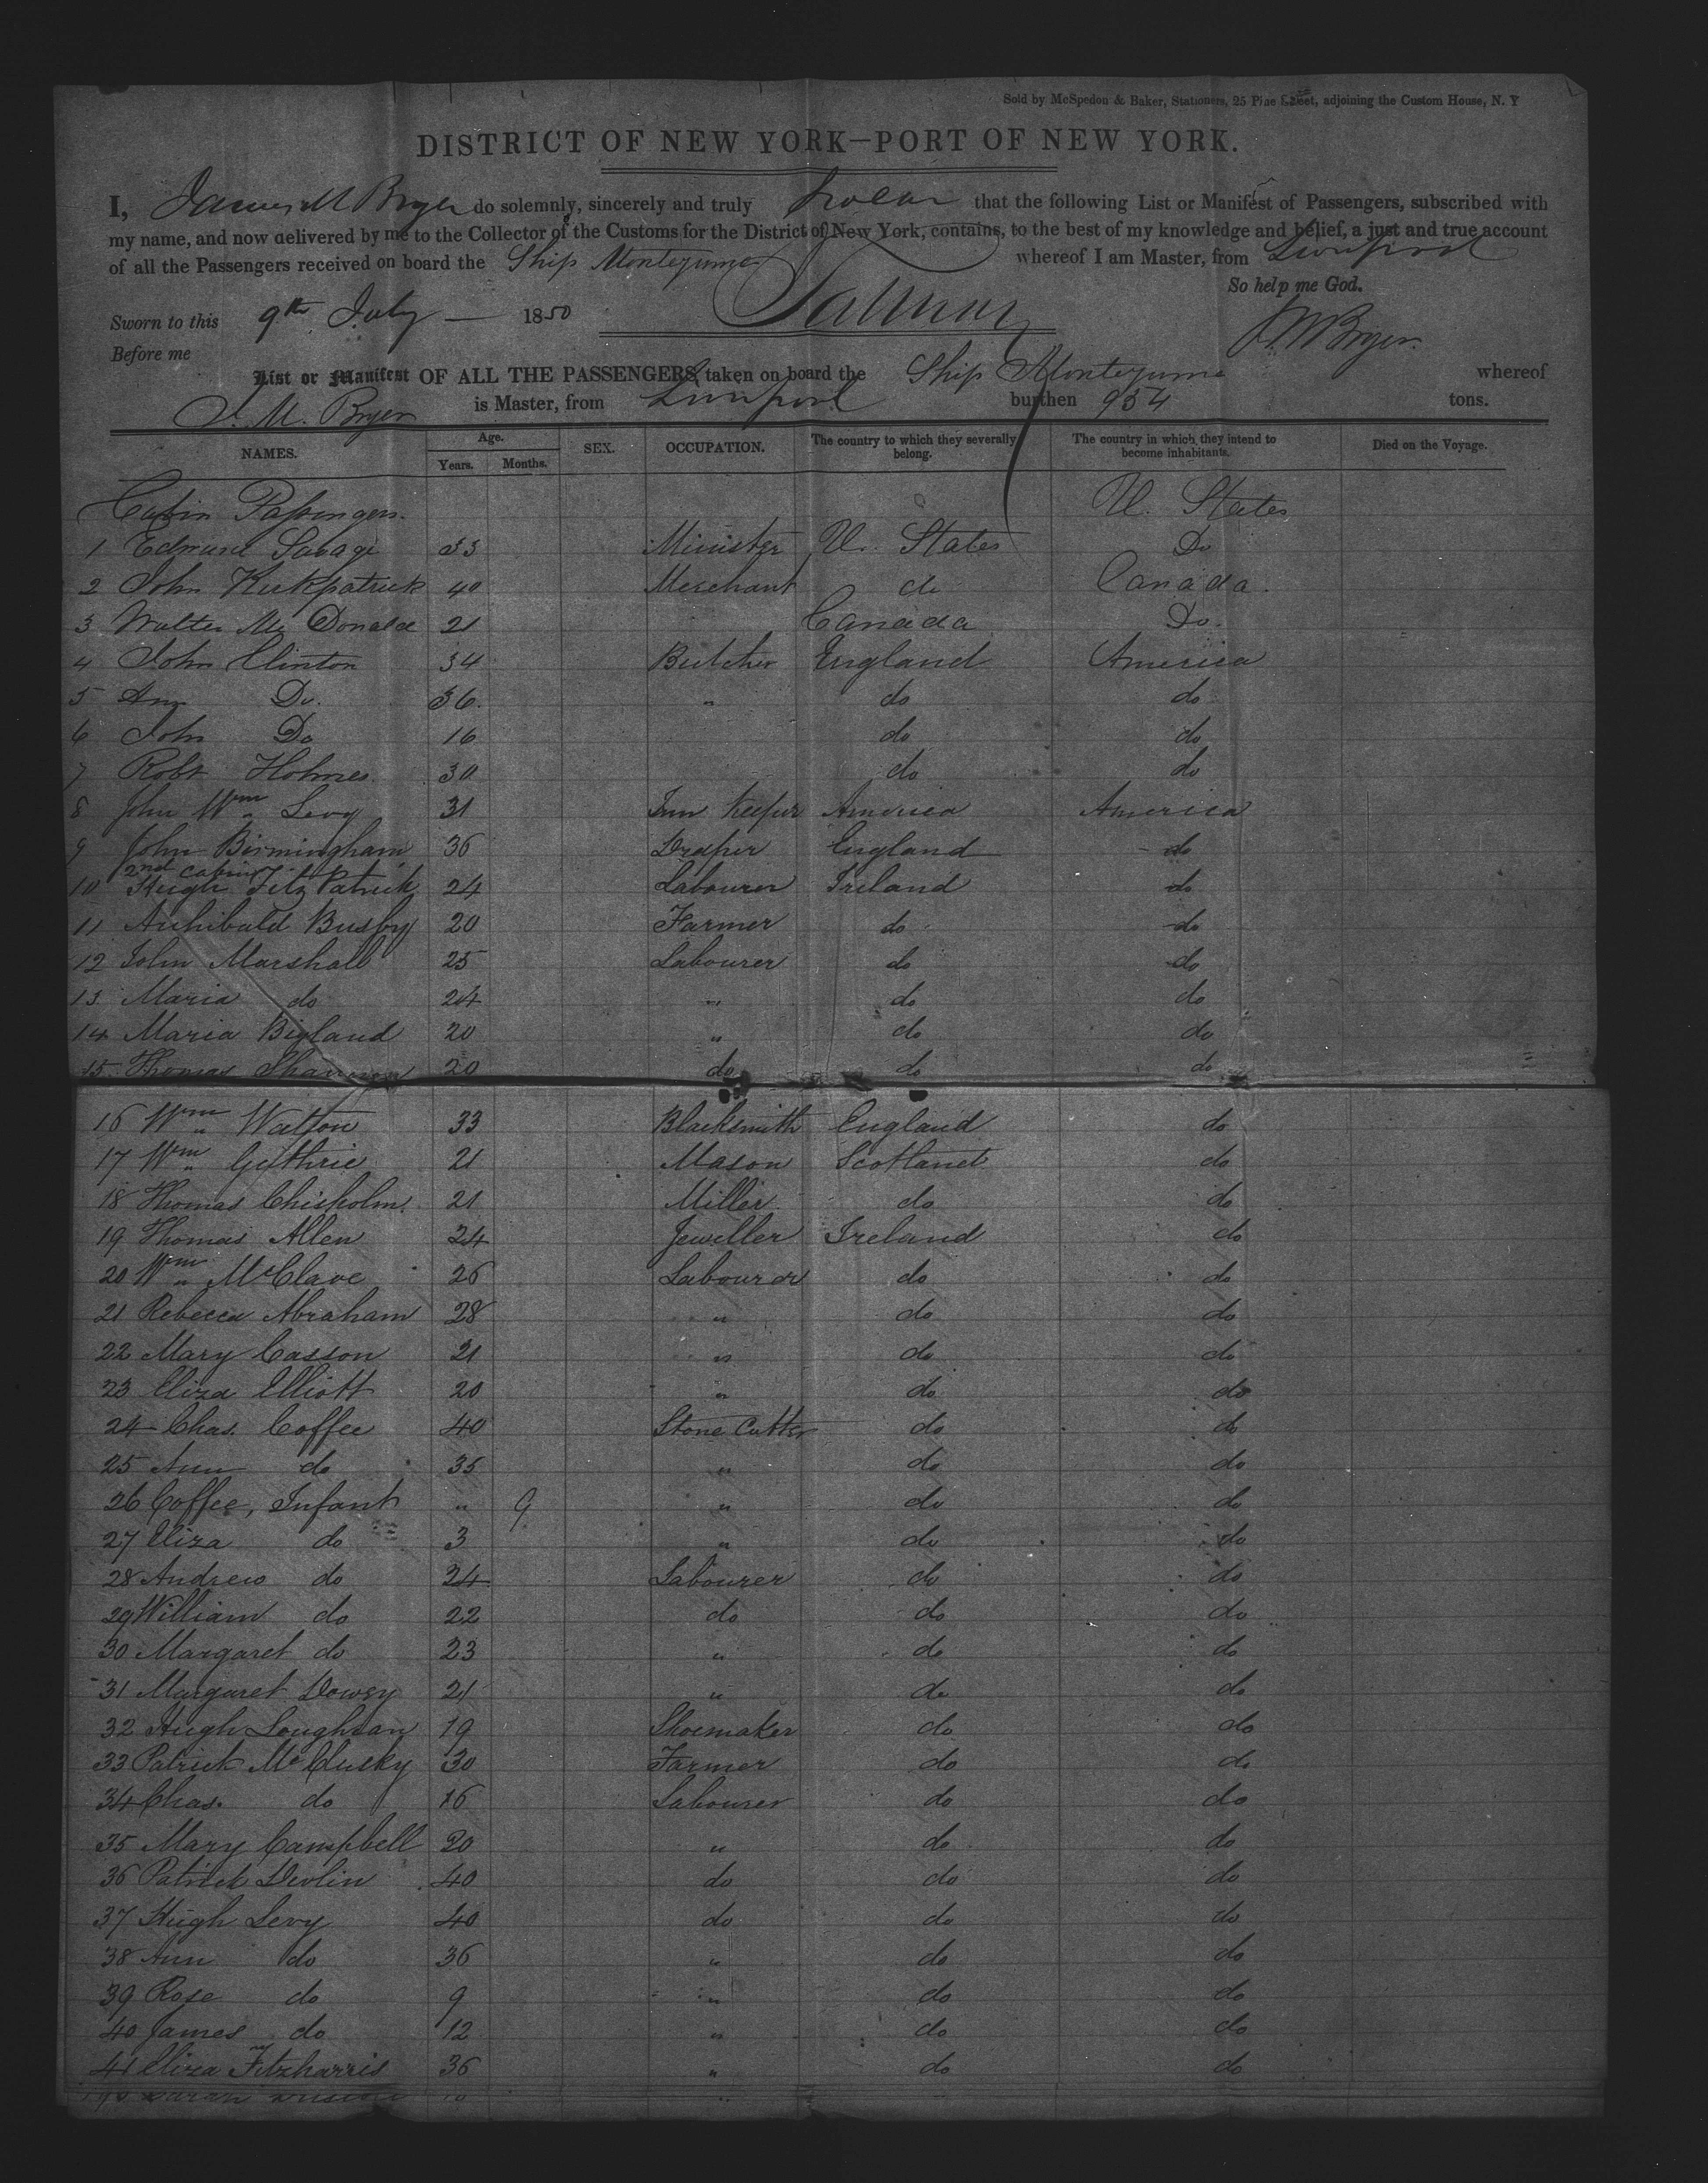 Sold by McSpedon & Baker, Stationers, 25 Pine Street, adjoining the Custom House, N. Y
DISTRICT OF NEW YORK—PORT OF NEW YORK.
I, James M Bryer do solemnly, sincerely and truly swear that the following List or Manifest of Passengers, subscribed with
my name, and now delivered by me to the Collector of the Customs for the District of New York, contains, to the best of my knowledge and belief, a just and true account
of all the Passengers received on board the Ship Montezuma whereof I am Master, from Liverpool
So help me God.
Sworn to this 9th July — 1850
J M Bryer
Before me
List or Manifest OF ALL THE PASSENGERS taken on board the Ship Montezuma whereof
J. M. Bryer is Master, from Liverpool burthen 934 tons.
NAMES. Age. Years. Months. SEX. OCCUPATION. The country to which they severally belong. The country in which they intend to become inhabitants. Died on the Voyage.
Cabin Passengers. U. States
1 Edmund Savage 33 Minister U. States Do
2 John Kirkpatrick 40 Merchant do Canada
3 Walter Mc Donald 21 Canada Do
4 John Clinton 34 Butcher England America
5 Ann Do. 36. " do do
6 John Do 16 do do
7 Robt Holmes 30 do do
8 John Wm Levy 31 Inn Keeper America America
9 John Birmingham 36 Draper England do
2nd Cabin
10 Hugh Fitz Patrick 24 Labourer Ireland do
11 Archibald Busby 20 Farmer do do
12 John Marshall 25 Labourer do do
13 Maria do 24 " do do
14 Maria Bigland 20 " do do
15 Thomas Shannon 20 do do do
16 Wm Watton 33 Blacksmith England do
17 Wm Guthrie 21 Mason Scotland do
18 Thomas Chisholm. 21 Miller do do
19 Thomas Allen 24 Jeweller Ireland do
20 Wm McClave 26 Labourer do do
21 Rebecca Abraham 28 " do do
22 Mary Casson 21 " do do
23 Eliza Elliott 20 " do do
24 Chas. Coffee 40 Stone Cutter do do
25 Ann do 35 " do do
26 Coffee, Infant " 9 " do do
27 Eliza do 3 " do do
28 Andrew do 24 Labourer do do
29 William do 22 do do do
30 Margaret do 23 " do do
31 Margaret Dowsy 21 " do do
32 Hugh Loughran 19 Shoemaker do do
33 Patrick McClusky 30 Farmer do do
34 Chas. do 16 Labourer do do
35 Mary Campbell 20 " do do
36 Patrick Devlin 40 do do do
37 Hugh Levy 40 do do do
38 Ann do 36 " do do
39 Rose do 9 " do do
40 James do 12 " do do
41 Eliza Fitzharris 36 " do do
Sarah